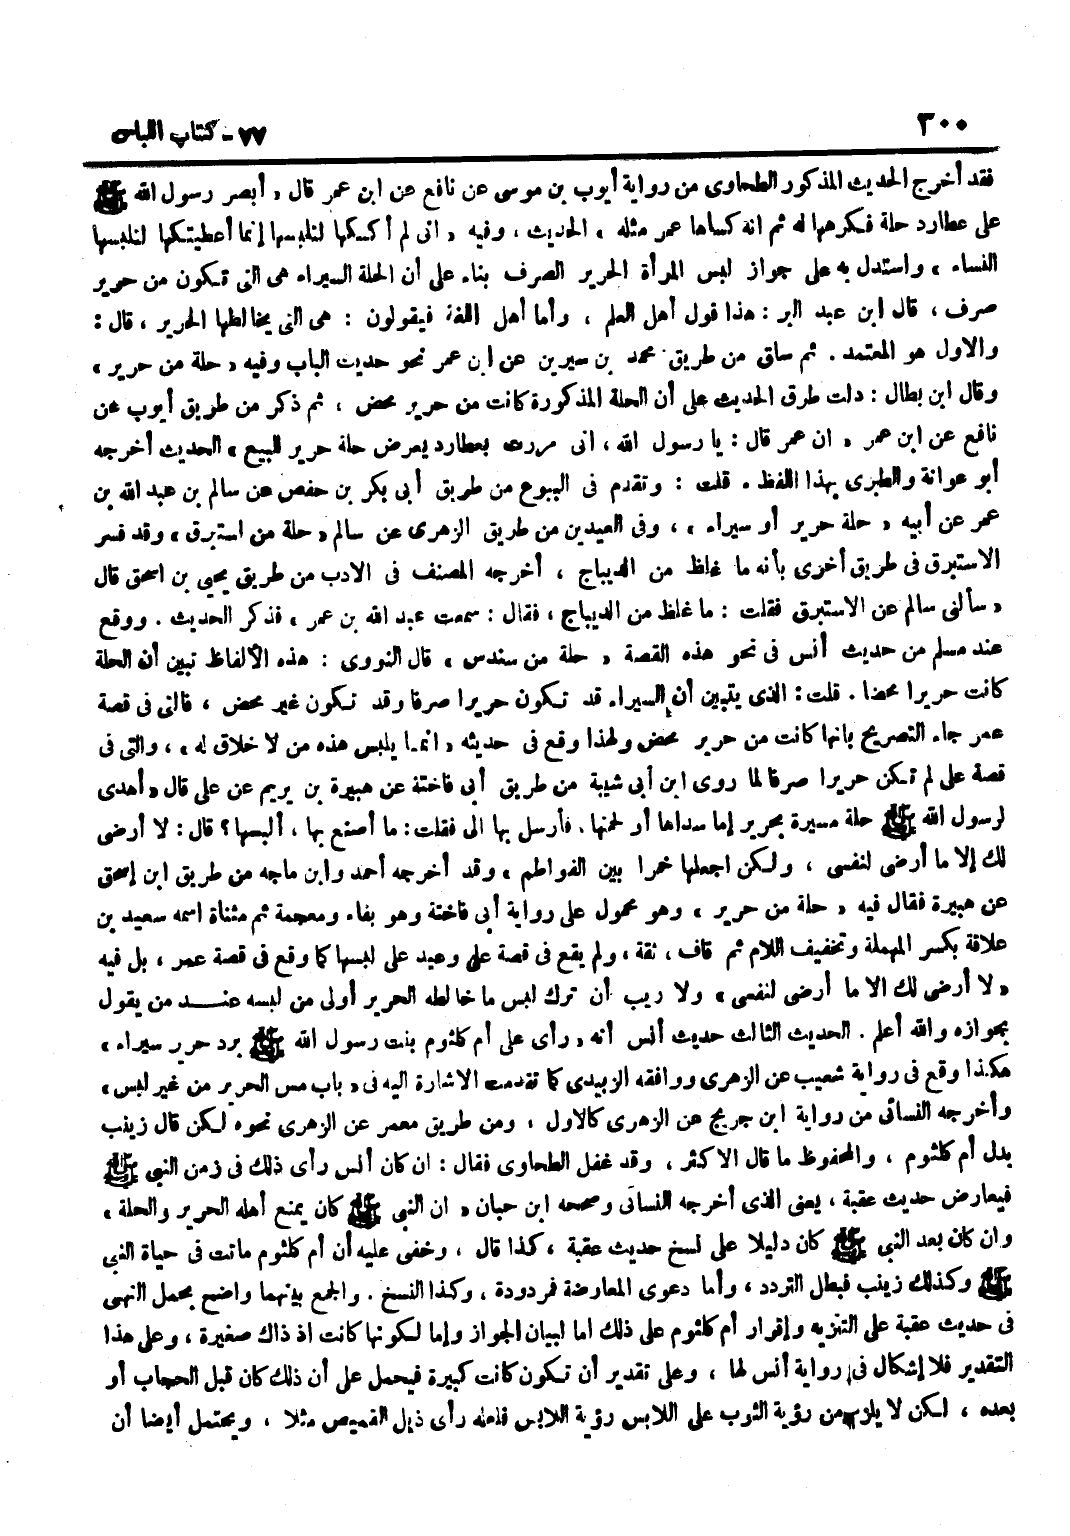 ٣٠٠
٧٧ - كتاب اللباس
فقد أخرج الحديث المذكور الطحاوى من رواية أيوب بن موسى عن نافع عن ابن عمر قال « أبصر رسول الله ﷺ
على عطارد حلة فكرهها له ثم انه كساها عمر مثله ، الحديث ، وفيه « انى لم أكسكها لتلبسها إنما أعطيتكها لتلبسها
النساء » واستدل به على جواز لبس المرأة الحرير الصرف بناء على أن الحلة السيراء هى التى تكون من حرير
صرف ، قال ابن عبد البر : هذا قول أهل العلم ، وأما أهل اللغة فيقولون : هى التى يخالطها الحرير ، قال :
والاول هو المعتمد . ثم ساق من طريق محمد بن سيرين عن ابن عمر نحو حديث الباب وفيه « حلة من حرير »
وقال ابن بطال : دلت طرق الحديث على أن الحلة المذكورة كانت من حرير محض ، ثم ذكر من طريق أيوب عن
نافع عن ابن عمر « ان عمر قال : يا رسول الله ، انى مررت بعطارد يعرض حلة حرير للبيع » الحديث أخرجه
أبو عوانة والطبرى بهذا اللفظ . قلت : وتقدم فى البيوع من طريق أبى بكر بن حفص عن سالم بن عبد الله بن
عمر عن أبيه « حلة حرير أو سيراء » ، وفى العيدين من طريق الزهرى عن سالم « حلة من استبرق » وقد فسر
الاستبرق فى طريق أخرى بأنه ما غلظ من الديباج ، أخرجه المصنف فى الادب من طريق يحيى بن اسحق قال
« سألنى سالم عن الاستبرق فقلت : ما غلظ من الديباج ، فقال : سمعت عبد الله بن عمر » فذكر الحديث . ووقع
عند مسلم من حديث أنس فى نحو هذه القصة « حلة من سندس » قال النووى : هذه الألفاظ تبين أن الحلة
كانت حريرا محضا . قلت : الذى يتبين أن السيراء قد تكون حريرا صرفا وقد تكون غير محض ، فالتى فى قصة
عمر جاء التصريح بانها كانت من حرير محض ولهذا وقع فى حديثه « انما يلبس هذه من لا خلاق له » ، والتى فى
قصة على لم تكن حريرا صرفا لما روى ابن أبى شيبة من طريق أبى فاختة عن هبيرة بن يريم عن على قال « أهدى
لرسول الله ﷺ حلة مسيرة بحرير إما سداها أو لحمتها . فأرسل بها الى فقلت : ما أصنع بها ، ألبسها ؟ قال : لا أرضى
لك إلا ما أرضى لنفسى ، ولكن اجعلها خمرا بين الفواطم » وقد أخرجه أحمد وابن ماجه من طريق ابن إسحق
عن هبيرة فقال فيه « حلة من حرير » وهو محمول على رواية أبى فاختة وهو بفاء ومعجمة ثم مثناة اسمه سعيد بن
علاقة بكسر المهملة وتخفيف اللام ثم قاف ، ثقة ، ولم يقع فى قصة على وعيد على لبسها كما وقع فى قصة عمر ، بل فيه
« لا أرضى لك الا ما أرضى لنفسى » ولا ريب أن ترك لبس ما خالطه الحرير أولى من لبسه عنـــد من يقول
بجوازه والله أعلم . الحديث الثالث حديث أنس أنه « رأى على أم كلثوم بنت رسول الله ﷺ برد حرير سيراء »
هكذا وقع فى رواية شعيب عن الزهرى ووافقه الزبيدى كما تقدمت الاشارة اليه فى « باب مس الحرير من غير لبس »
وأخرجه النسائى من رواية ابن جريج عن الزهرى كالاول ، ومن طريق معمر عن الزهرى نحوه لكن قال زينب
بدل أم كلثوم ، والمحفوظ ما قال الاكثر ، وقد غفل الطحاوى فقال : ان كان أنس رأى ذلك فى زمن النبى ﷺ
فيعارض حديث عقبة ، يعنى الذى أخرجه النسائى وصححه ابن حبان « ان النبى ﷺ كان يمنع أهله الحرير والحلة »
وان كان بعد النبى ﷺ كان دليلا على نسخ حديث عقبة ، كذا قال ، وخفى عليه أن أم كلثوم ماتت فى حياة النبى
ﷺ وكذلك زينب فبطل التردد ، وأما دعوى المعارضة فمردودة ، وكذا النسخ . والجمع بينهما واضح بحمل النهى
فى حديث عقبة على التنزيه وإقرار أم كلثوم على ذلك اما لبيان الجواز وإما لكونها كانت اذ ذاك صغيرة ، وعلى هذا
التقدير فلا إشكال فى رواية أنس لها ، وعلى تقدير أن تكون كانت كبيرة فيحمل على أن ذلك كان قبل الحجاب أو
بعده ، لكن لا يلزم من رؤية الثوب على اللابس رؤية اللابس فلعله رأى ذيل القميص مثلا ، ويحتمل أيضا أن